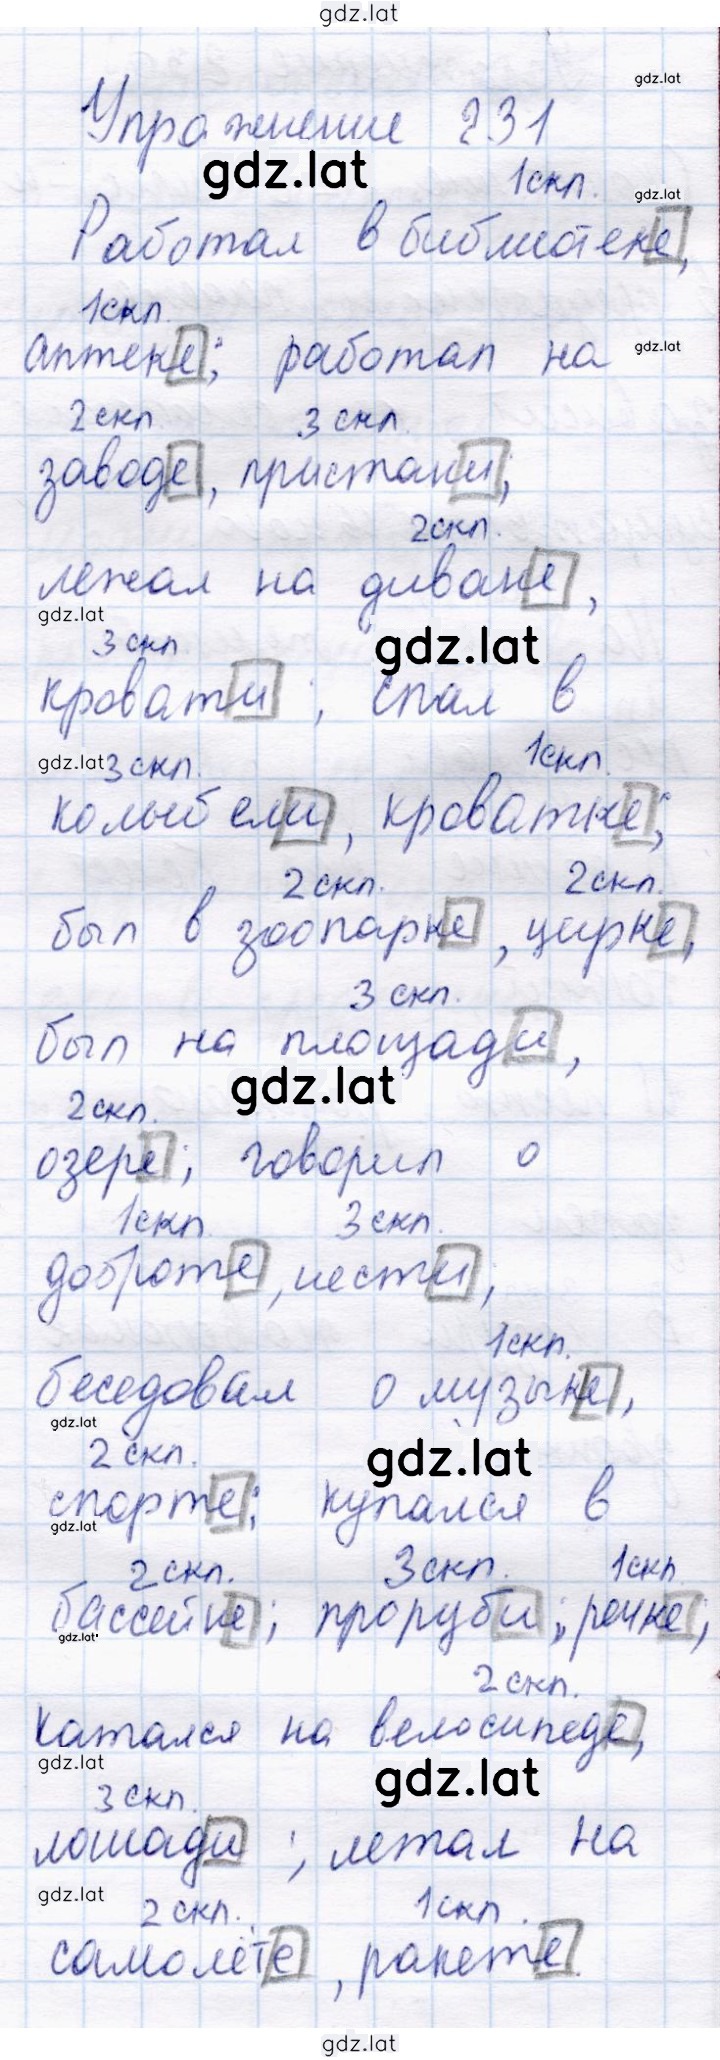 gdz.lat
gdz.lat
Упражнение 231
gdz.lat
1скл.
gdz.lat
Работал в библиотеке,
1скл.
аптеке; работал на
gdz.lat
2скл. 3 скл.
заводе, пристани;
2скл.
лежал на диване,
gdz.lat
3 скл. gdz.lat
кровати; спал в
gdz.lat 3 скл. 1скл.
колыбели, кроватке;
2скл. 2скл.
был в зоопарке, цирке,
3 скл.
был на площади,
gdz.lat
2скл.
озере; говорил о
1скл. 3скл.
доброте, чести,
1скл.
беседовал о музыке,
gdz.lat
2 скл. gdz.lat
спорте; купался в
gdz.lat
2скл. 3скл. 1скл
бассейне; проруби; речке;
gdz.lat
2скл.
катался на велосипеде,
gdz.lat gdz.lat
3 скл.
лошади; летал на
gdz.lat
2 скл. 1скл.
самолёте, ракете
gdz.lat